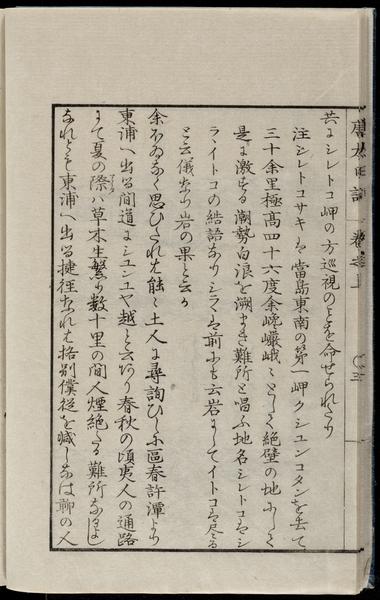 共にシレトコ岬の方巡視のよを命せられたり
注シレトコサキハ當島東南の第一岬クシユンコタンを去て
三十余里極高四十六度余巉巖峨〻として絶壁の地にして
是に激する潮勢白浪を溯まき難所と唱ふ地名シレトコハシ
ラ、イトコの結語なりシラハ前にも云岩にしてイトコハ尽る
と云儀なり岩の果と云か
余ほゐなく思ひたれは能〻土人に尋詢ひしに區春許潭より
東浦へ出る間道にシユシユヤ越と云あり春秋の頃夷人の通路
にて夏の際ハ草木生繁り数十里の間人煙絶たる難所なるよし
なれとも東浦へ出る捷徑なれは格別僕従を減しなは聊の人
唐太日記 卷之上 〇三